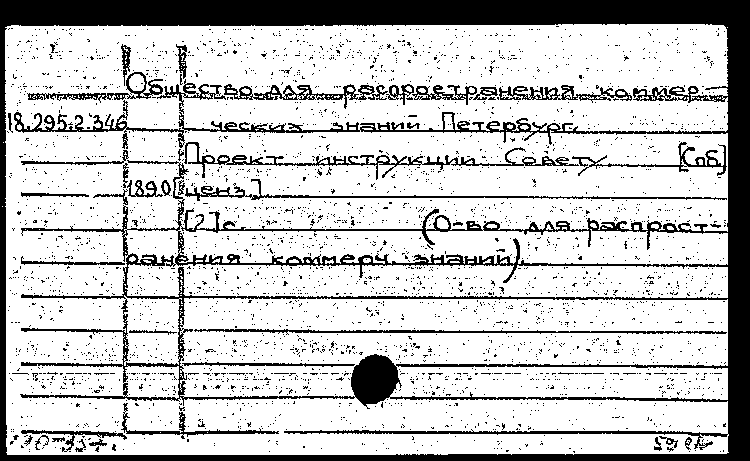 Общество для распространения коммер-
18.295.2.346 ческих знаний. Петербург.
Проект инструкции Совету [Спб.]
1890 [ценз.]
[2] с. (О-во для распрост-
ранения коммерч. знаний).